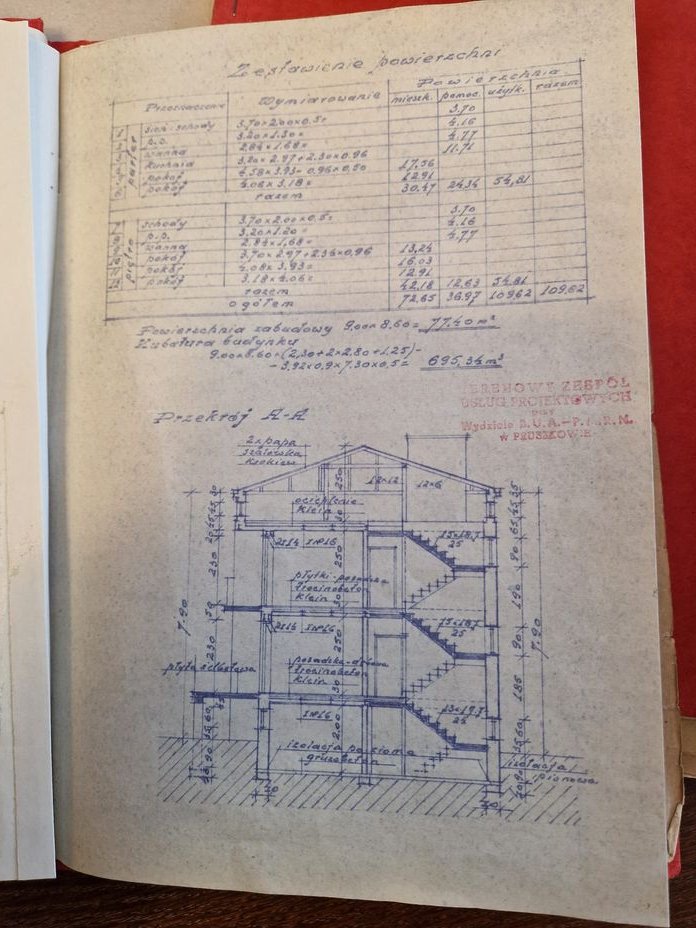 Zestawienie powierzchni
Przeznaczenie Wymiarowanie Powierzchnia
mieszk. pomoc. użytk. razem
parter
sień-schody 3.70×2.00×0.5= 3.70
p.p. 3.20×1.30= 4.16
wanna 2.84×1.68= 4.77
kuchnia 3.20×2.97+2.30×0.96 11.71
pokój 4.58×3.93-0.96×0.50 17.56
pokój 4.06×3.18= 12.91
razem 30.47 24.34 54,81
piętro
schody 3.70×2.00×0.5= 3.70
p.p. 3.20×1.30= 4.16
wanna 2.84×1,68= 4.77
pokój 3.70×2.97+2.34×0,96 13,24
pokój 4.08×3.93= 16.03
pokój 3.18×4.06= 12.91
razem 42.18 12.63 54.81
ogółem 72.65 36.97 109.62 109,62
Powierzchnia zabudowy 9.00×8.60= 77.40 m²
Kubatura budynku
9.00×8.60×(2,30+2×2.80+1.25)-
-3,92×0,9×7.30×0,5= 695,34 m³
TERENOWY ZESPÓŁ
USŁUG PROJEKTOWYCH
przy
Wydziale B.U.A.-P.P.R.N.
w PRUSZKOWIE
Przekrój A-A
2×papa
szalówka
krokiew
250
12×12
12×6
ocieplenie
klein
30
2I14 I№16
15×18.7
25
250
230
płytki-posadzka
trocinobeton
klein
30
190
90
7.90
2I14 I№16
15×18.7
25
250
230
posadzka-dębowa
trocinobeton
klein
30
185
90
7.90
płyta żelbetowa
I№16
200
13×17.7
25
izolacja pozioma
gruzobeton
izolacja
pionowa